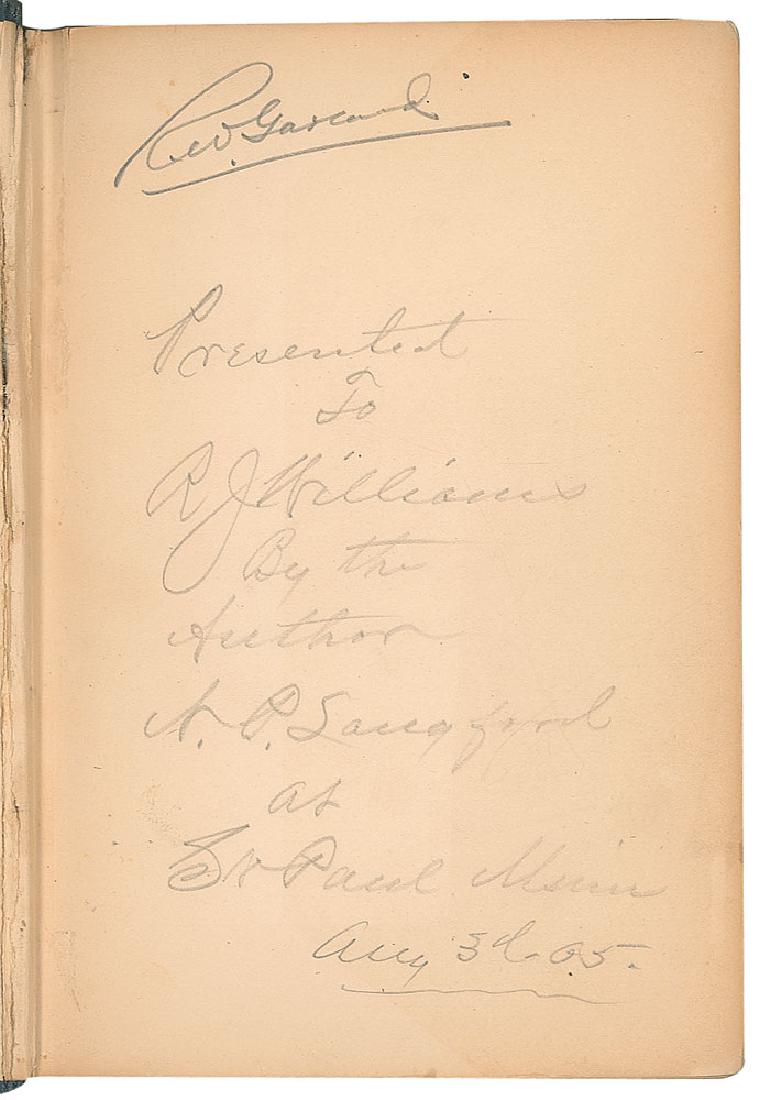 Presented
To
R J Williams
By the
Author
N. P. Langford
at
St Paul Minn
Aug 3d 05.